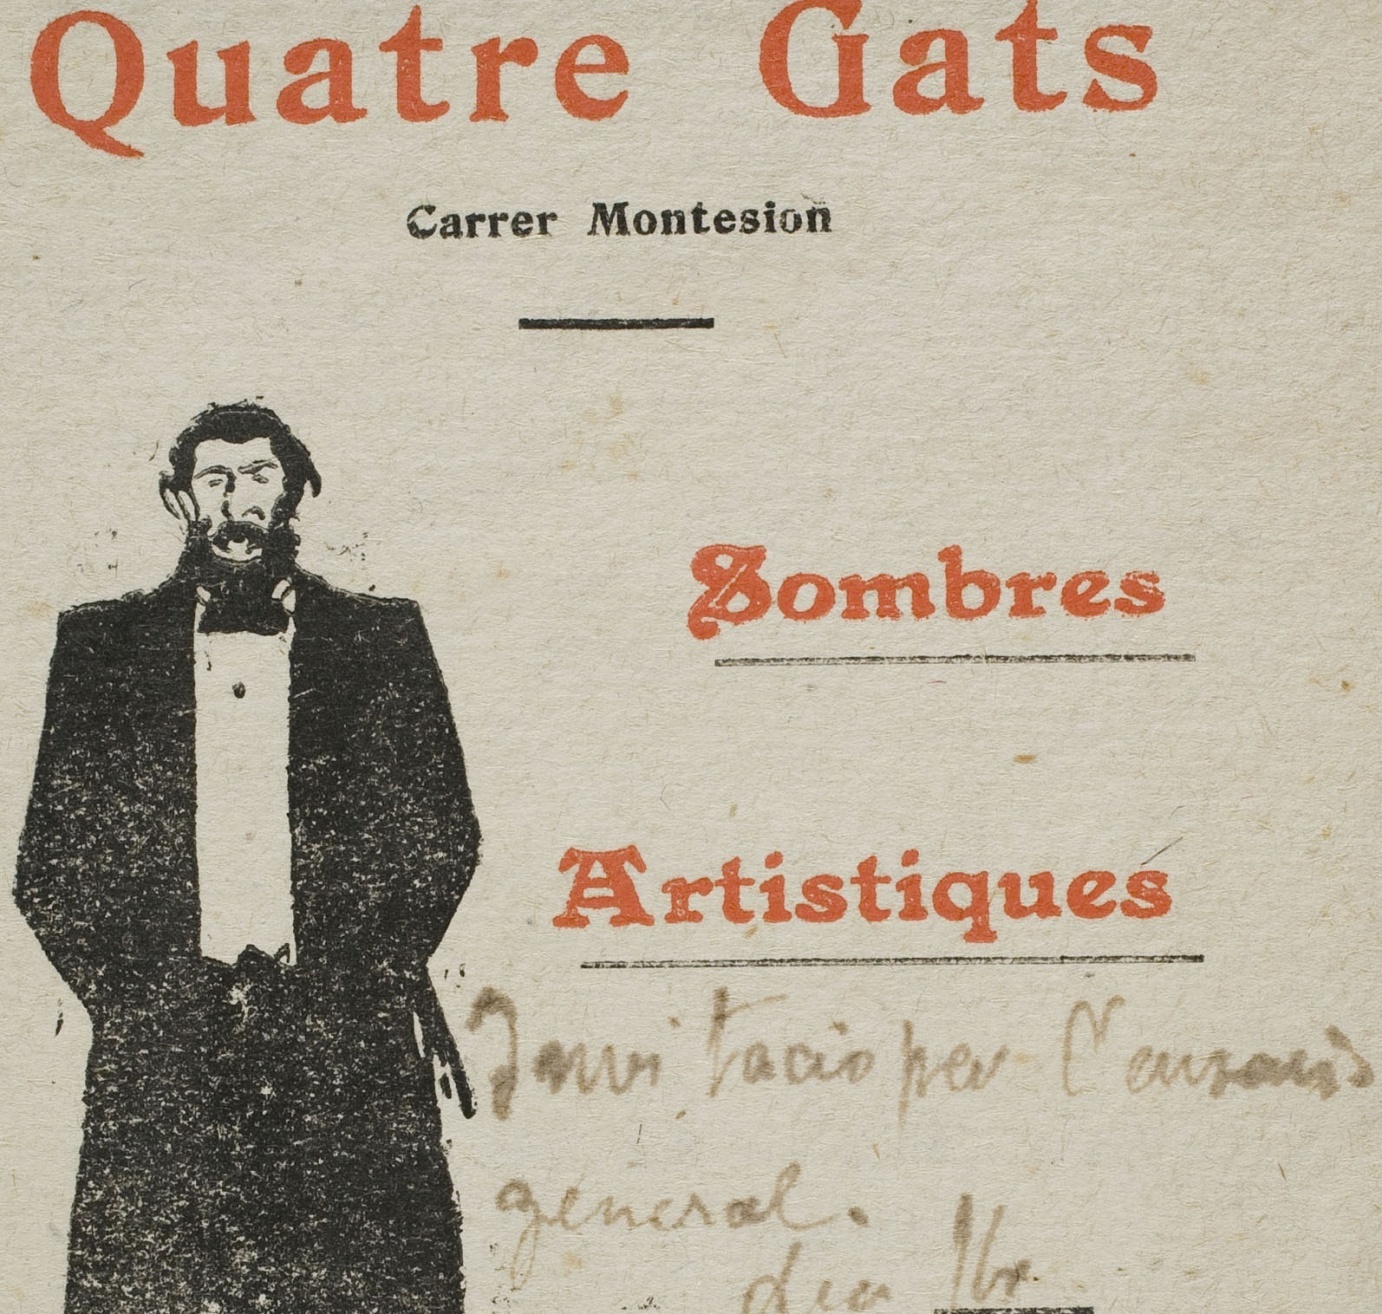 Quatre Gats
Carrer Montesion
Sombres
Artistiques
Invitacio per l'ensaig
general.
dia